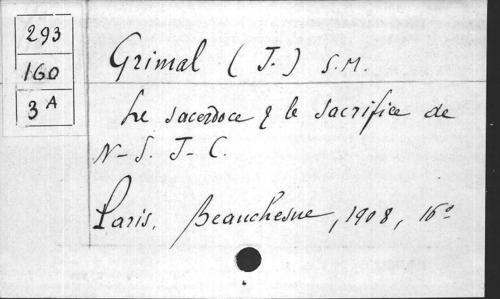 293
160
3 A
Grimal (J.) S.M.
Le sacerdoce & le sacrifice de
N-S. J-C.
Paris, Beauchesne, 1908, 16º